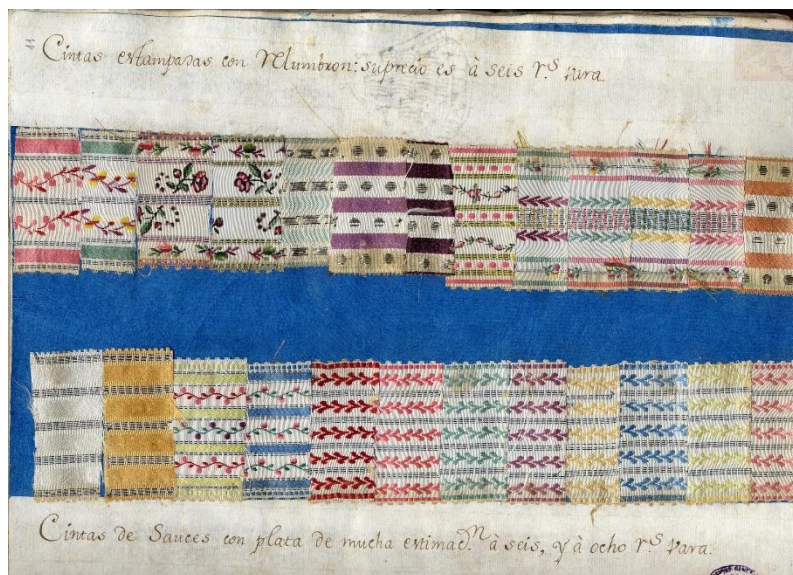 11
Cintas estampadas con Relumbron: su precio es à seis r.s vara.
Cintas de Sauces con plata de mucha estimac.n à seis, y à ocho r.s vara.